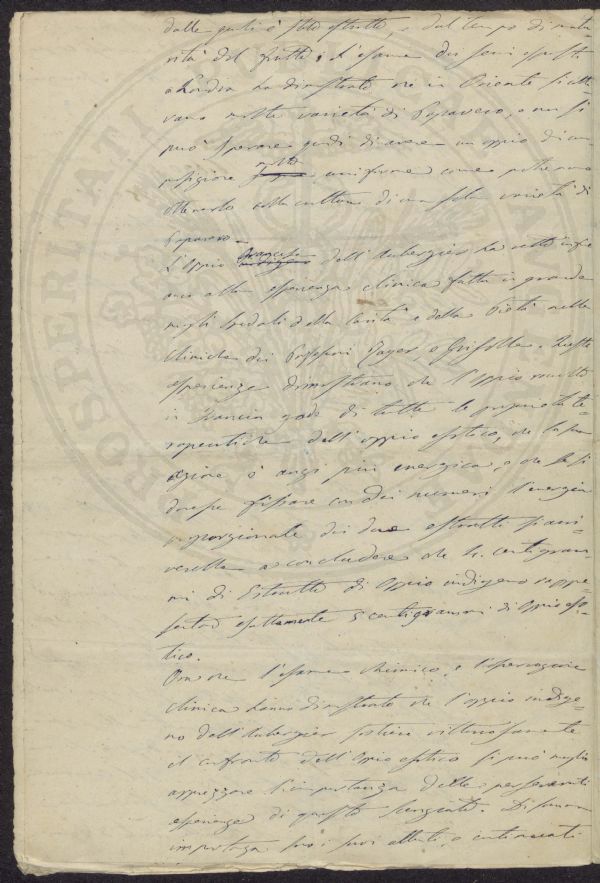 dalle quali è stato estratto, e dal tempo di matu-
rità del frutto. L'esame dei semi spediti
a Londra ha dimostrato che in Oriente si colti-
vano molte varietà di Papavero, e non si
può sperare quindi di avere un oppio di com-
posizione molto uniforme come potremmo
ottenerlo colla cultura di una sola varietà di
Papavero.
L'Oppio francese dell'Aubergier ha
anco alla esperienza clinica fatta in grande
negli Spedali della Carità e della Pietà nelle
Cliniche dei Professori Rayer, e Grisolle. Queste
esperienze dimostrano che l'oppio raccolto
in Francia gode di tutte le proprietà te-
rapeutiche dell'oppio esotico, che la sua
azione è anzi più energica, e che se si
dovesse fissare con dei numeri l'energia
proporzionale dei due estratti si arri-
verebbe a concludere che 4 centigram-
mi di Estratto di Oppio indigeno rappre-
sentano esattamente 5 centigrammi di Oppio eso-
tico.
Ora che l'esame chimico, e l'osservazione
clinica hanno dimostrato che l'oppio indige-
no dell'Aubergier sostiene vittoriosamente
il confronto dell'Oppio esotico si può meglio
apprezzare l'importanza delle perseveranti
esperienze di questo Scienziato. Di somma
importanza sono i suoi e continuati